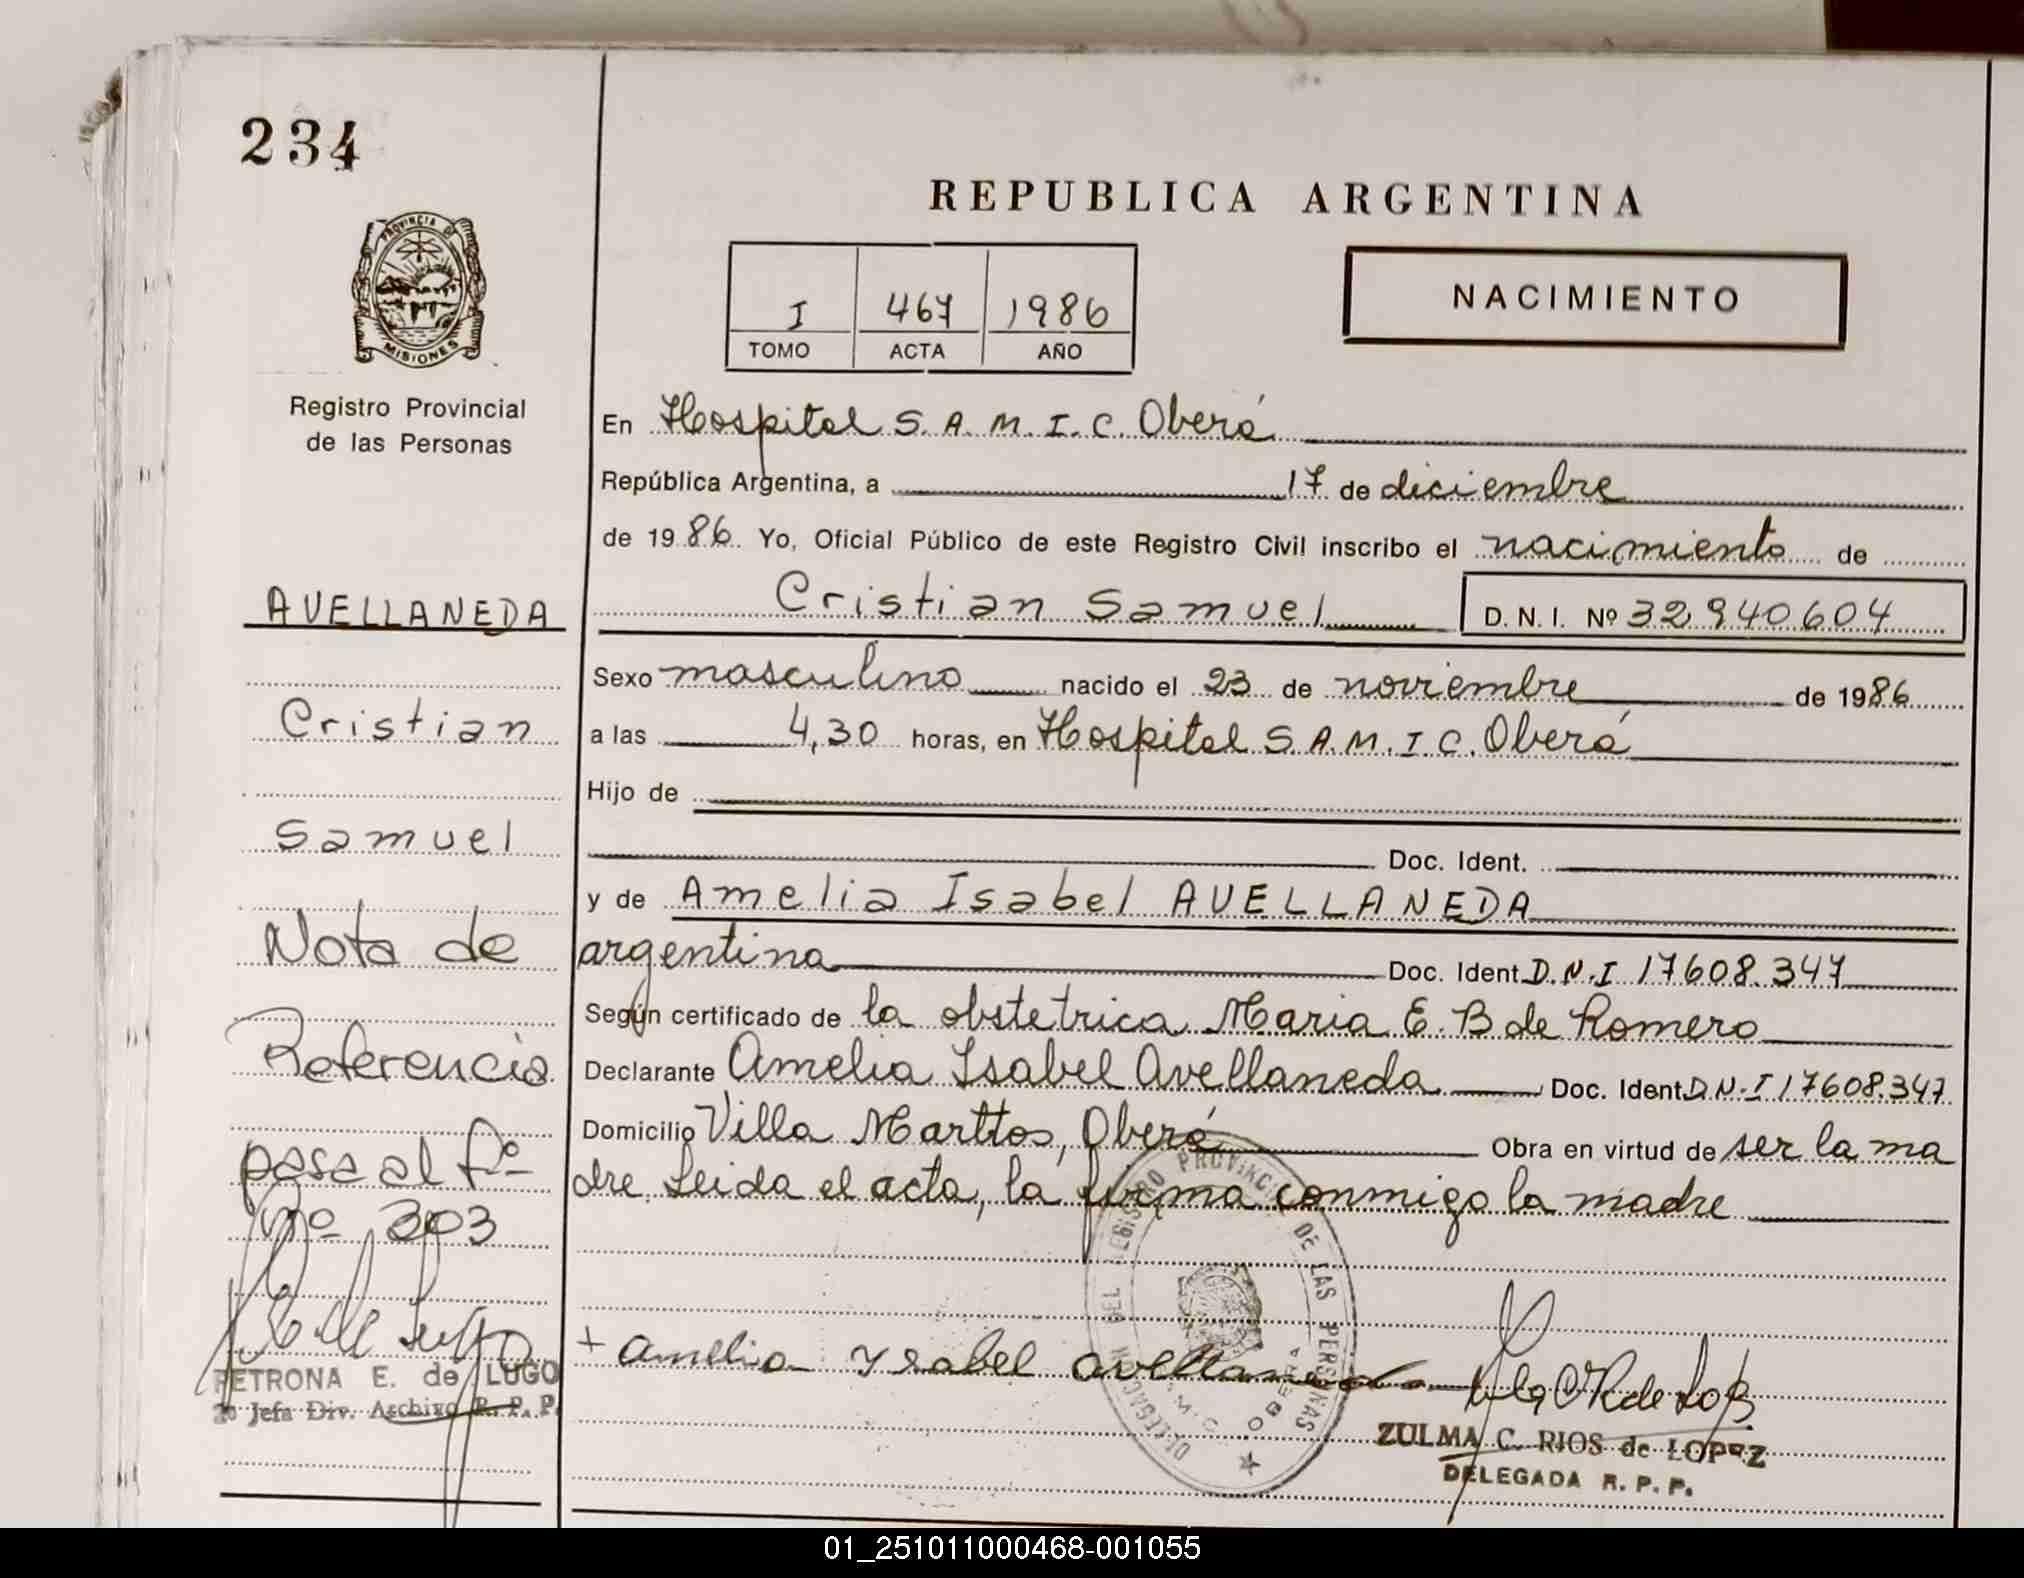 234
REPUBLICA ARGENTINA
PROVINCIA DE
MISIONES
I 467 1986
TOMO ACTA AÑO
NACIMIENTO
Registro Provincial
de las Personas
En Hospital S. A. M. I. C. Oberá
República Argentina, a 17 de diciembre
de 1986 Yo, Oficial Público de este Registro Civil inscribo el nacimiento de
Cristian Samuel D. N. I. Nº 32940604
Sexo masculino nacido el 23 de noviembre de 1986
a las 4,30 horas, en Hospital S. A. M. I C. Oberá
Hijo de
Doc. Ident.
y de Amelia Isabel AVELLANEDA
argentina Doc. Ident. D.N.I 17608.347
Según certificado de la obstetrica Maria E. B de Romero
Declarante Amelia Isabel Avellaneda Doc. Ident. D N.I 17608.347
Domicilio Villa Marttos, Oberá Obra en virtud de ser la ma
dre. Leida el acta, la firma conmigo la madre
+ Amelia Ysabel Avellaneda
ZULMA C. RIOS de LOPEZ
DELEGADA R. P. P.
DELEGACION DEL REGISTRO PROVINCIAL DE LAS PERSONAS
OBERA
AVELLANEDA
Cristian
Samuel
Nota de
Referencia
pasa al Fº
Nº 303
PETRONA E. de LUGO
2º Jefa Div. Archivo R. P. P.
01_251011000468-001055